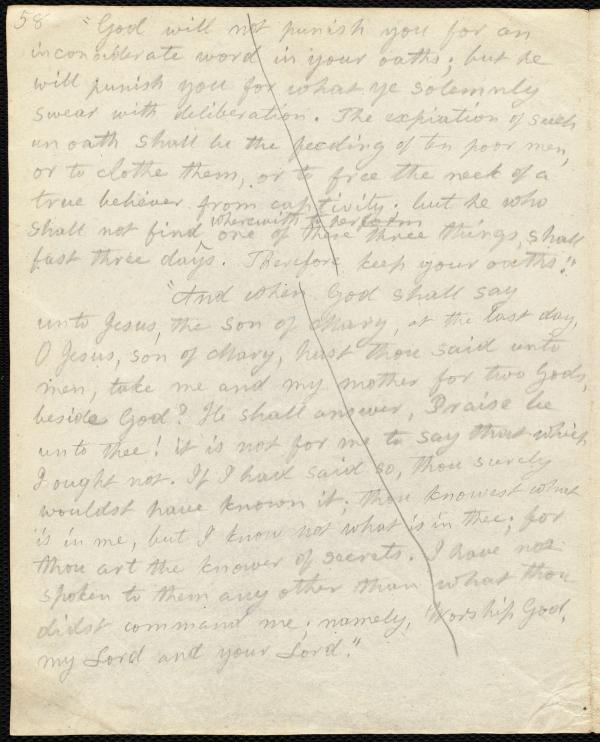 58
"God will not punish you for an
inconsiderate word in your oaths; but he
will punish you for what ye solemnly
swear with deliberation. The expiation of such
an oath shall be the feeding of ten poor men,
or to clothe them, or to free the neck of a
true believer from captivity; but he who
wherewith to perform
shall not find ‸ one of these three things, shall
fast three days. Therefore keep your oaths."
"And when God shall say
unto Jesus, the son of Mary, at the last day,
O Jesus, son of Mary, hast thou said unto
men, take me and my mother for two Gods,
beside God? He shall answer, Praise be
unto thee! it is not for me to say that which
I ought not. If I had said so, thou surely
wouldst have known it; thou knowest what
is in me, but I know not what is in thee; for
thou art the knower of secrets. I have not
spoken to them any other than what thou
didst command me; namely, Worship God,
my Lord and your Lord."